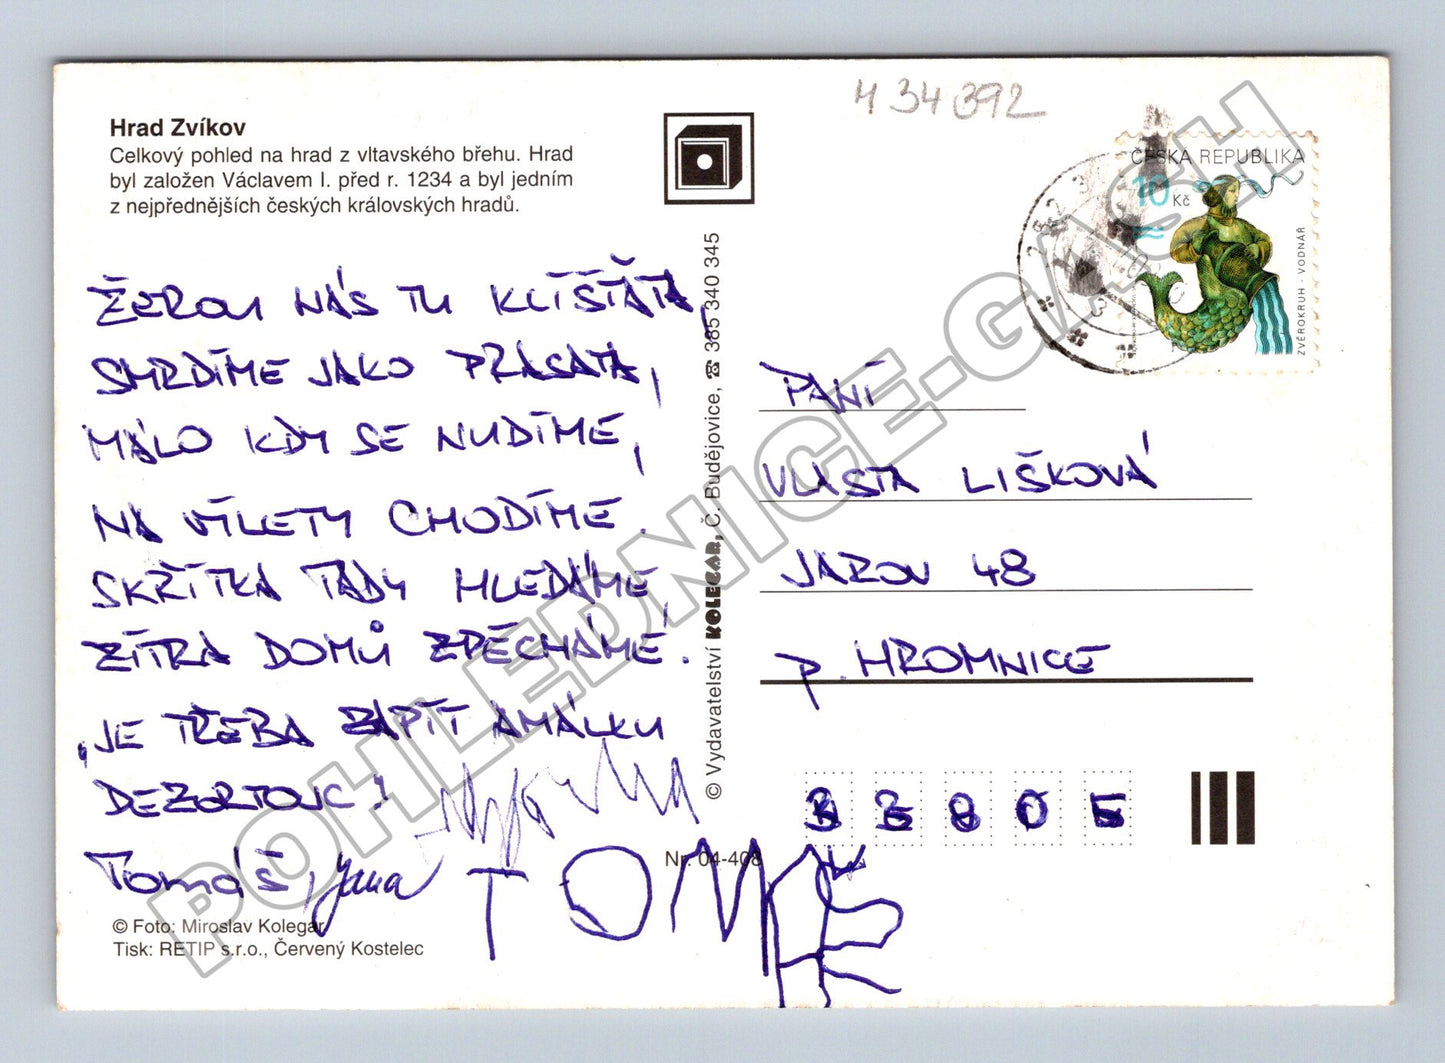 Hrad Zvíkov
Celkový pohled na hrad z vltavského břehu. Hrad
byl založen Václavem I. před r. 1234 a byl jedním
z nejpřednějších českých královských hradů.
ŽEROU NÁS TU KLÍŠŤATA,
SMRDÍME JAKO PRASATA,
MÁLO KDY SE NUDÍME,
NA VÝLETY CHODÍME.
SKŘÍTKA TADY HLEDÁME,
ZÍTRA DOMŮ ZPĚCHÁME!
„JE TŘEBA ZAPÍT AMÁLKU
DEZERTOUC!
Tomáš, Jana
TOM
© Foto: Miroslav Kolegar
Tisk: RETIP s.r.o., Červený Kostelec
Nr. 04-408
© Vydavatelství KOLEGAR, Č. Budějovice, ☎ 385 340 345
434392
ČESKA REPUBLIKA
10 Kč
ZVĚROKRUH · VODNÁŘ
PANÍ
VLASTA LIŠKOVÁ
JAROV 48
P. HROMNICE
POHLEDNICE-GACH